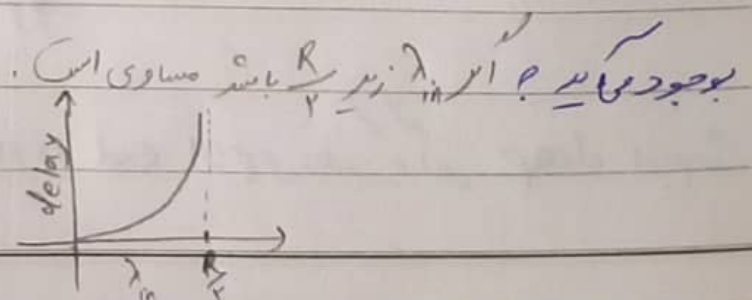 بوجود می‌آید ؟ اگر λin زیر R/۲ باشد مساوی است .
delay
λin R/۲